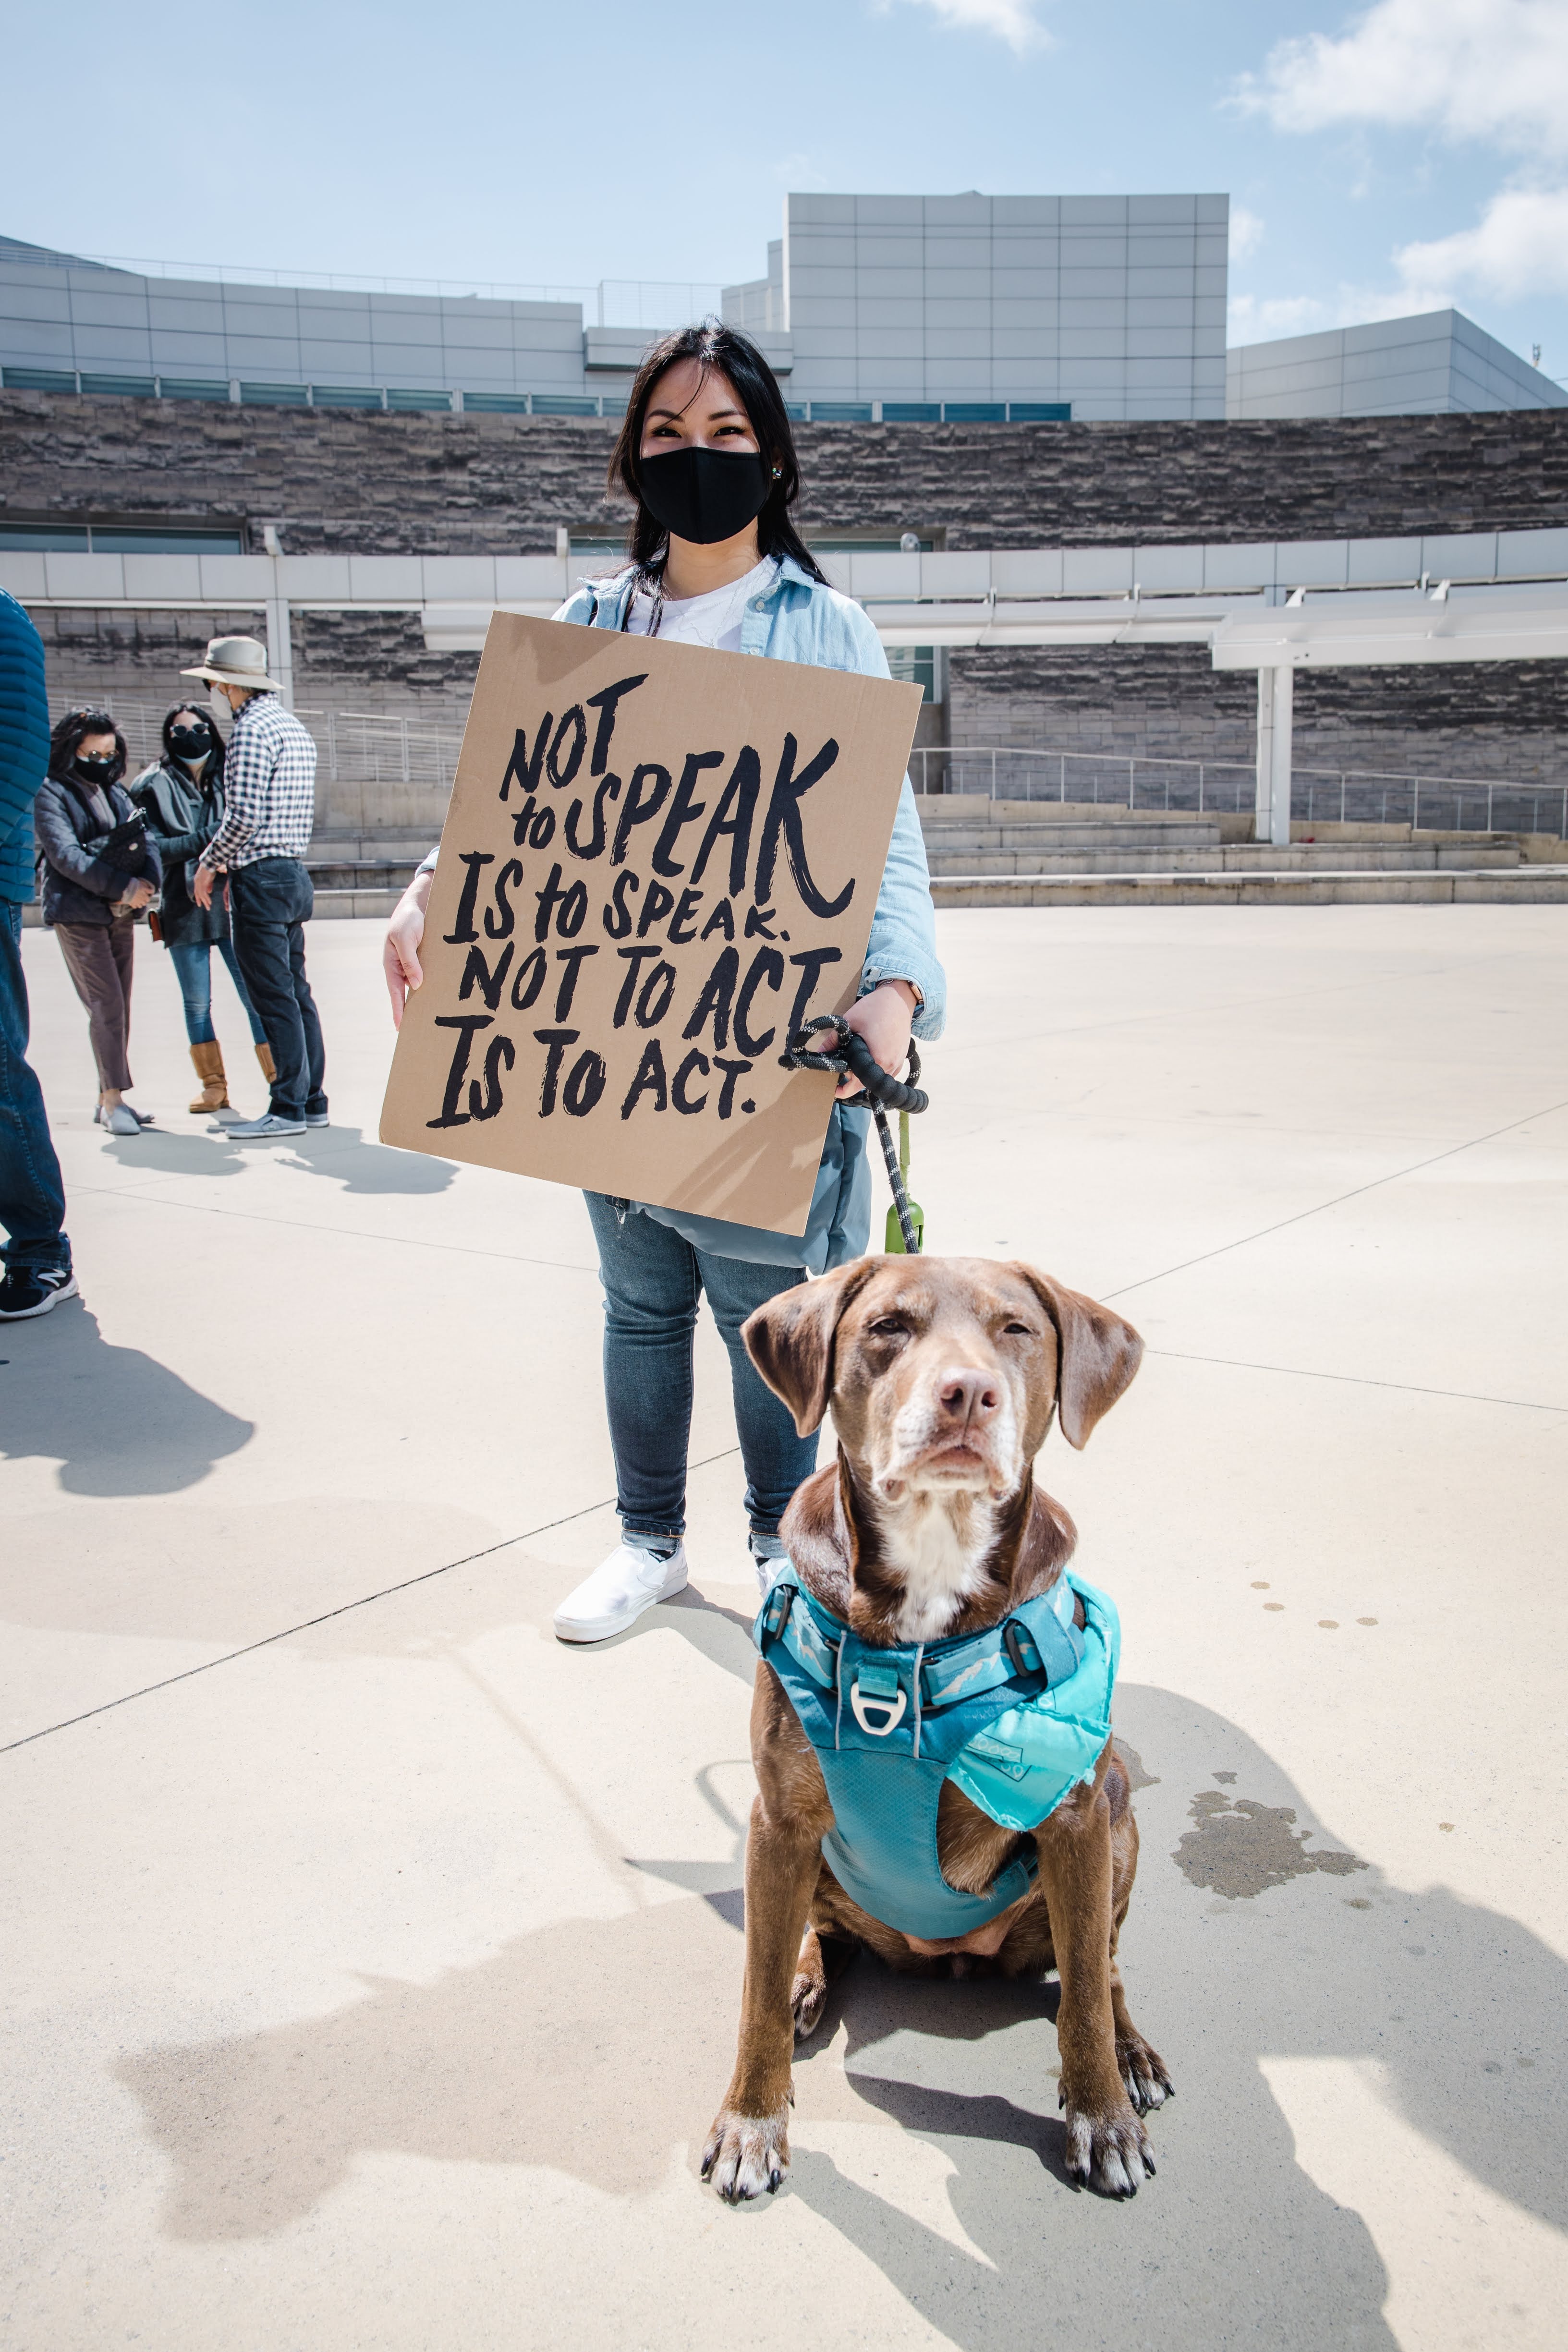 NOT
to SPEAK
IS to SPEAK.
NOT TO ACT
IS TO ACT.